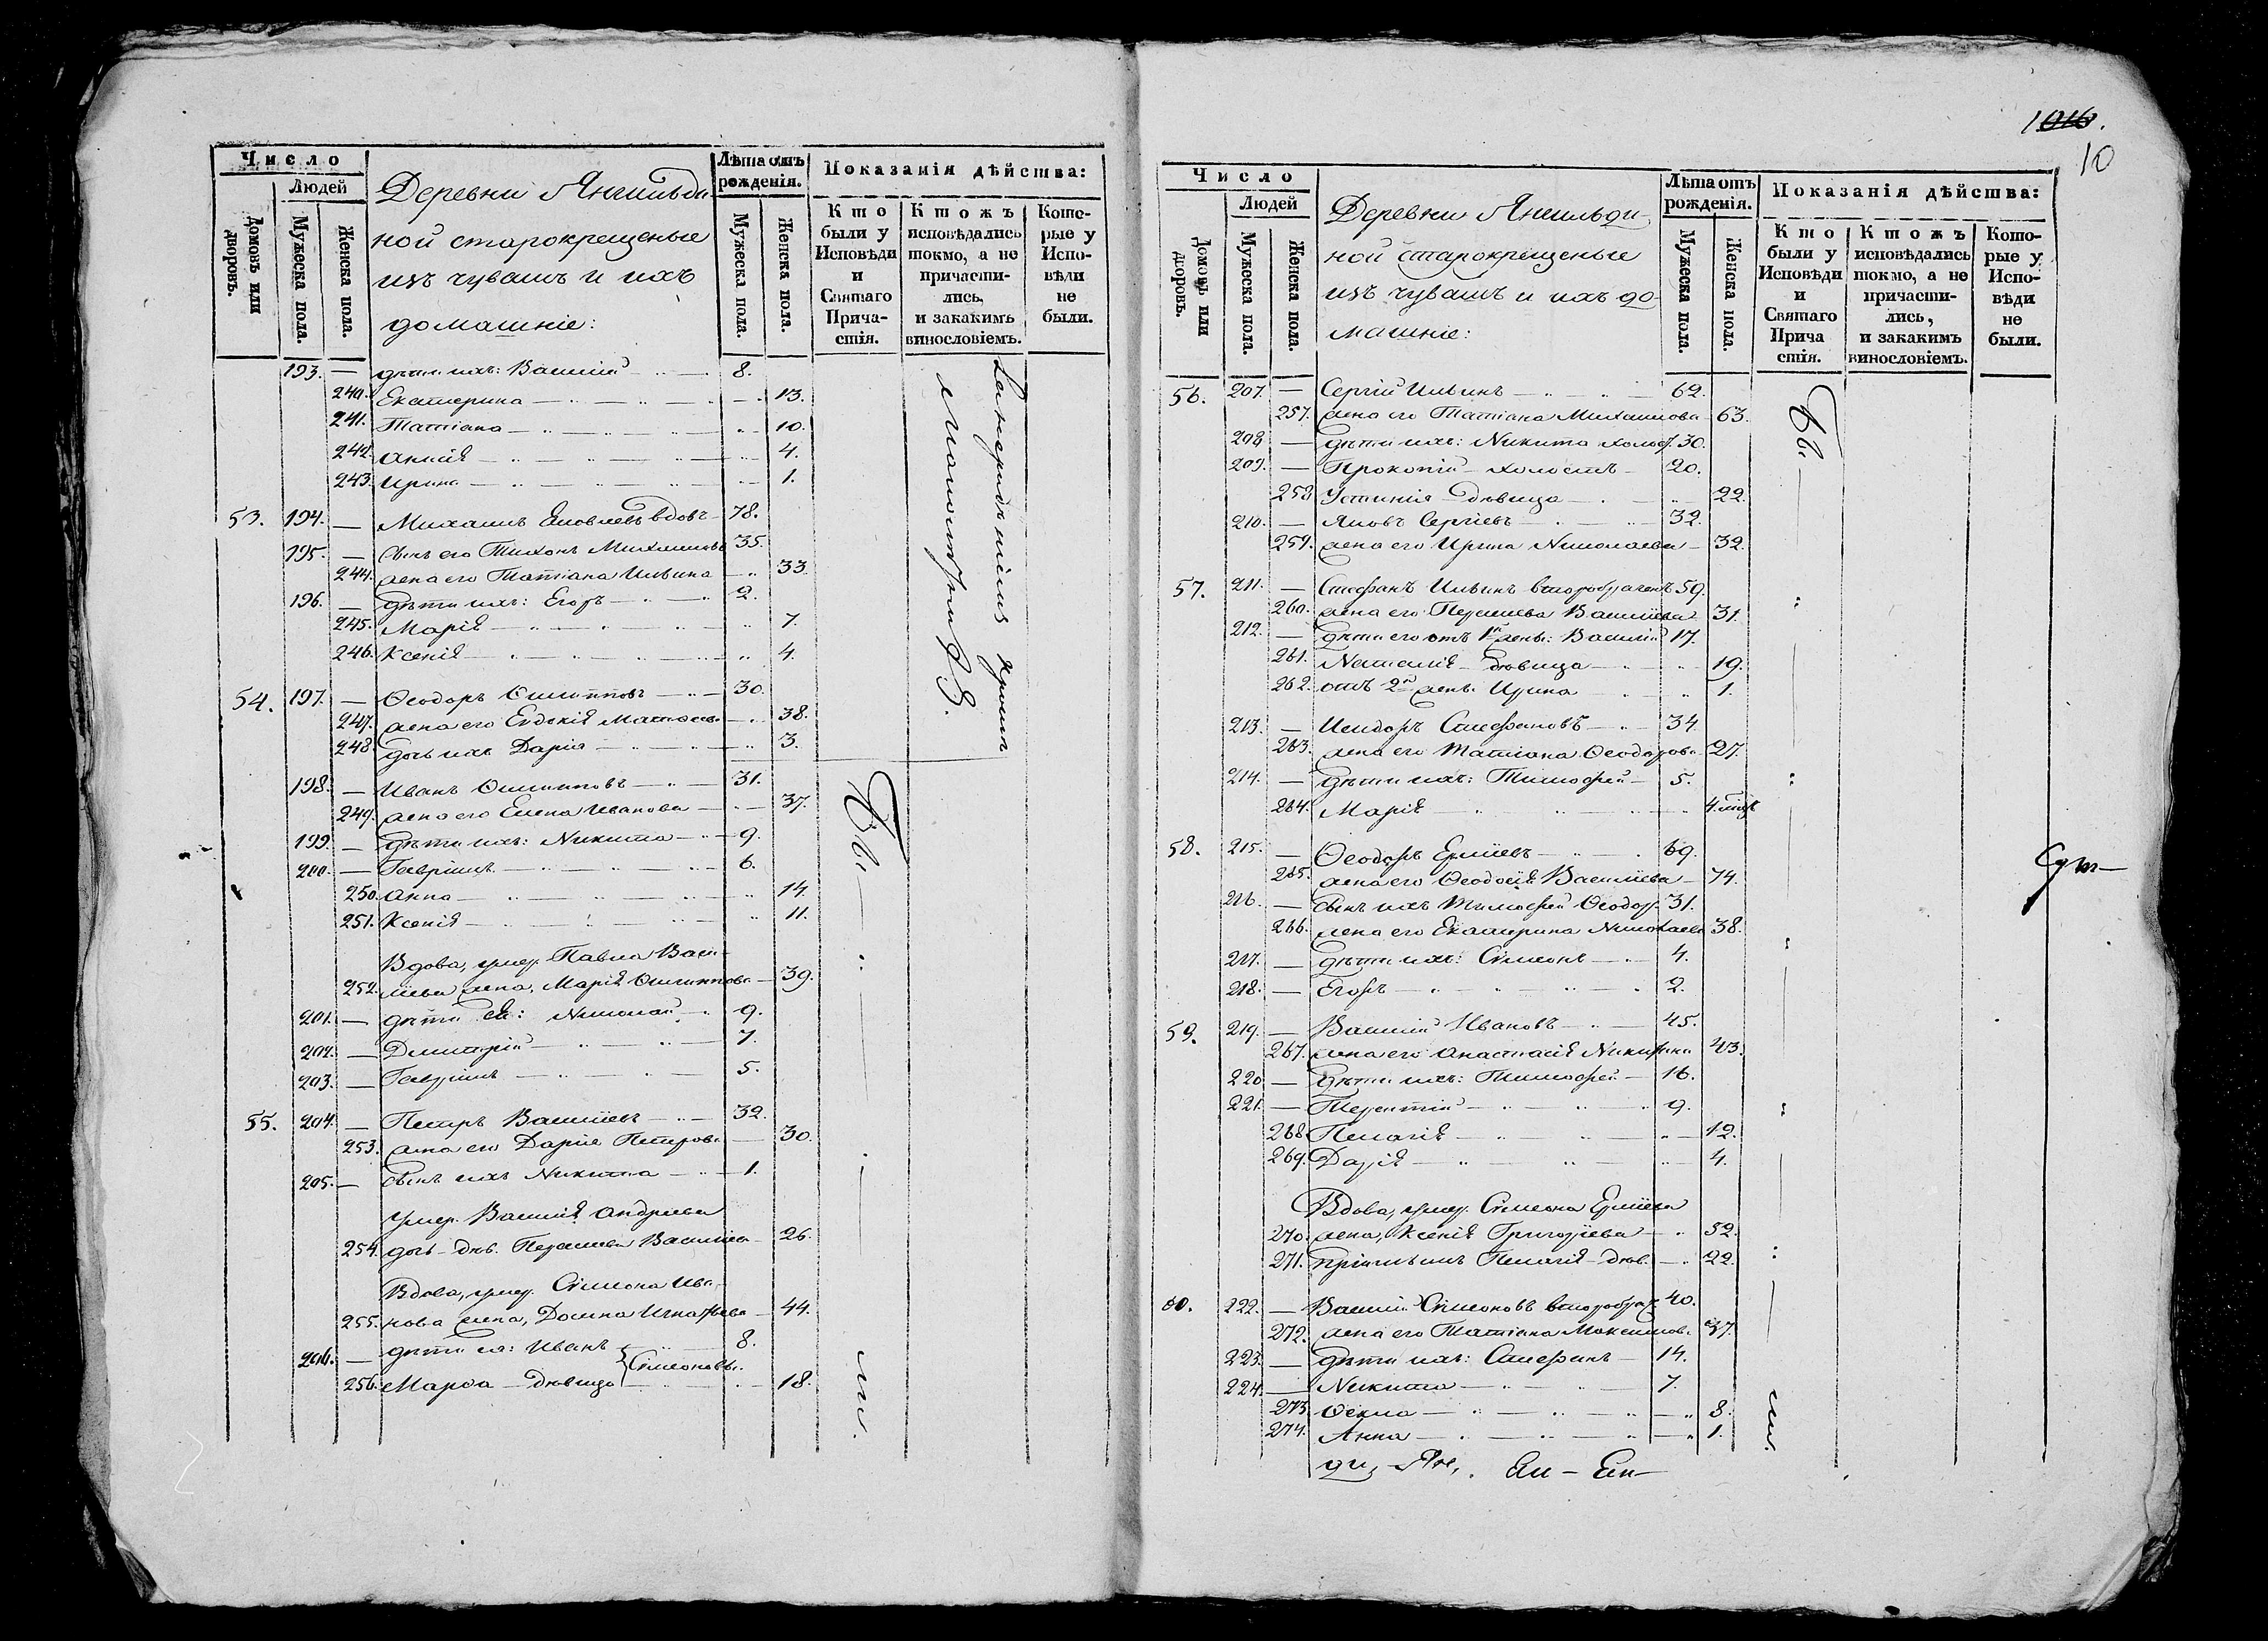 Число
Людей
Домовъ или дворовъ.
Мужеска пола.
Женска пола.
Деревни Янгильди-
ной старокрещеные
изъ чувашъ и ихъ
домашніе:
Лѣта отъ рожденія.
Мужеска пола.
Женска пола.
Показанія дѣйства:
Кто были у Исповѣди и Святаго Прича-стія.
Ктожъ исповѣдались токмо, а не причасти-лись, и закакимъ винословіемъ.
Кото-рые у Испо-вѣди не были.
193. — дѣти ихъ: Василій 8.
240. Екатерина 13.
241. Татіана 10.
242. 4.
243. Ирина 1.
53. 194. — Михаилъ Яковлевъ вдовъ 78.
195. — Сынъ его Тихонъ Михаиловъ 35.
244. жена его Татіана Ильина 33.
196. — дѣти ихъ: Егоръ 2.
245. Марія 7.
246. Ксенія 4.
54. 197. — Ѳеодоръ Филипповъ 30.
247. жена его Евдокія 38.
248. дочь ихъ Дарія 3.
198. — Иванъ Филипповъ 31.
249. жена его Елена Иванова 37.
199. — дѣти ихъ: Никита 9.
200. — Гавріилъ 6.
250. Анна 14.
251. Ксенія 11.
Вдова, умер. Павла Васи-
252. ліева жена, Марія Филиппова 39.
201. — дѣти ея: Николай 9.
202. — Димитрій 7.
203. — Гавріилъ 5.
55. 204. — Петръ Василіевъ 32.
253. жена его Дарія Петрова 30.
205. — Сынъ ихъ Никита 1.
умер. Василія Андреева
254. дочь дѣв. Васильева 26.
Вдова, умер. Симеона Ива-
255. нова жена, Домна Игнатьева 44.
206. — дѣти ея: Иванъ 8.
Симеоновы.
256. Марѳа — дѣвица 18.
Бы —
ли.
1016.
10
Число
Людей
Домовъ или дворовъ.
Мужеска пола.
Женска пола.
Деревни Янгильди-
ной старокрещеные
изъ чувашъ и ихъ до-
машніе:
Лѣта отъ рожденія.
Мужеска пола.
Женска пола.
Показанія дѣйства:
Кто были у Исповѣди и Святаго Прича стія.
Ктожъ исповѣдались токмо, а не причасти-лись, и закакимъ винословіемъ.
Кото-рые у Испо-вѣди не были.
56. 207. — Сергій Ильинъ 62.
257. жена его Татіана Михаилова 63.
208. — дѣти ихъ: Никита холост. 30.
209. — Прокопій холостъ 20.
258. Устинія дѣвица 22.
210. — Яковъ Сергіевъ 32.
259. жена его Ирина Николаева 32.
57. 211. — Стефанъ Ильинъ второбраченъ 59.
260. жена его Василіева 31.
212. — дѣти его отъ 1й жены: Василій 17.
261. Наталія дѣвица 19.
262. отъ 2й жены Ирина 1.
213. — Исидоръ Стефановъ 34.
263. жена его Татіана Ѳеодорова 27.
214. — дѣти ихъ: Тимофей 5.
264. Марія 4.
58. 215. — Ѳеодоръ 69.
265. жена его Ѳеодосія Василіева 74.
216. — Сынъ ихъ Тимофей Ѳеодор. 31.
266. жена его Екатерина Николаева 38.
217. — дѣти ихъ: Симеонъ 4.
218. — Егоръ 2.
59. 219. — Василій Ивановъ 45.
267. жена его Анастасія 43.
220. — дѣти ихъ: Тимофей 16.
221. — Терентій 9.
268. Пелагія 12.
269. Дарія 4.
Вдова, умер. Симеона
270. жена, Ксенія Григоріева 52.
271. Пелагія дѣв. 22.
60. 222. — Василій Симеоновъ второбрач. 40.
272. жена его Татіана Максимов. 37.
223. — дѣти ихъ: Стефанъ 14.
224. — Никита 7.
273. Ѳекла 8.
274. Анна 1.
Бы —
ли.